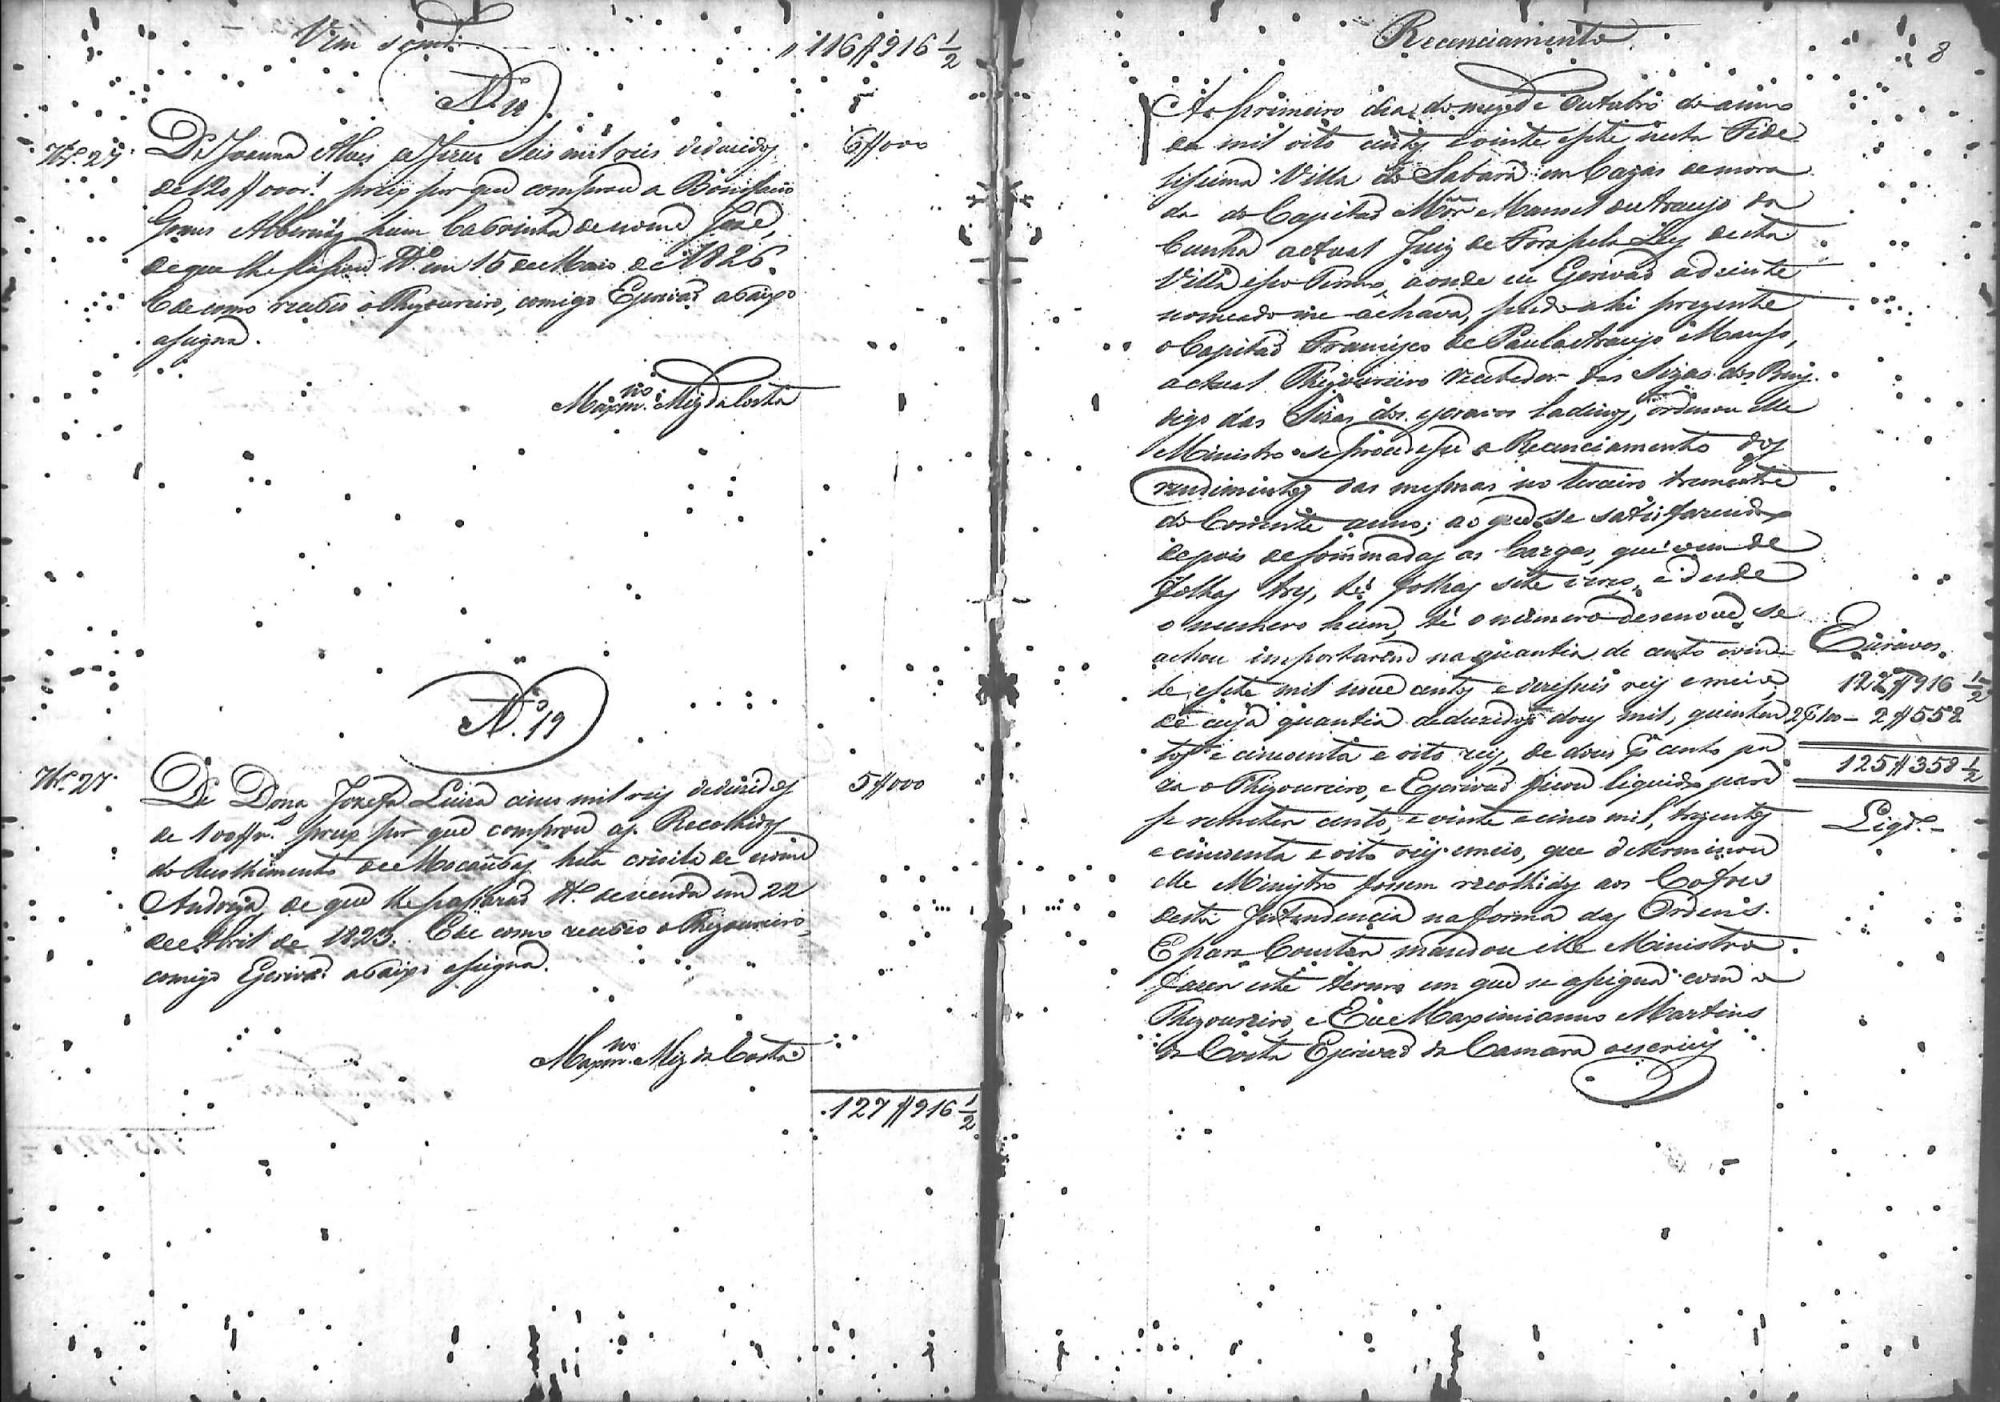 Vem somdo
116$916 1/2
N.º 18
7br.º 27
De Joanna Alves de Jezus Seis mil reis deduzidos
6$000
de 120$000 r.s preço por que comprou a Bonifacio
Gomes Abbernás hum Cabrinha de nome José,
de que lhe passou tt.º em 15 de Maio de 1826.
E de como recebeo o Thezoureiro, comigo Escrivaõ abaixo
assigna.
Maxim.no Miz da Costa
N.º 19
7br.º 27
De Dona Jozefa Luiza cinco mil reis deduzidos
5$000
de 100$ r.s preço por que comprou as Recolhidas
do Recolhimento de Macaúbas huã crioila de nome
Andreza, de que lhe passaraõ tt.º de venda em 22
de Abril de 1823. E de como recebeo o Thezoureiro,
comigo Escrivaõ abaixo assigna.
Maxim.no Miz da Costa
127$916 1/2
Recenciamento
8
Ao primeiro dia do mez de Outubro do anno
de mil oito centos e vinte e sete nesta Fide
lissima Villa do Sabará em Cazas de mora
da do Capitaõ Mór Manoel de Araujo da
Cunha actual Juiz de Fora pela Ley desta
Villa e seo Termo, aonde eu Escrivaõ adeiante
nomeado me achava, sendo ahi prezente
o Capitaõ Francisco de Paula Araujo
actual Thezoureiro recebedor das Sizas dos Bens
digo das Sizas dos escravos ladinos, ordenou elle
Ministro se procedesse a Recenciamento dos
rendimentos das mesmas no terceiro tremestre
do Corrente anno; ao que se satisfazendo
depois de sommadas as Cargas, que vem de
folhas tres, té folhas sete verso, e desde
o numero hum, té o número desenove, se
achou importarem na quantia de cento e vin
te e sete mil nove centos e dezeseis reis e meio,
de cuja quantia deduzidos dous mil, quinhen
tos e cincoenta e oito reis, de dous p.r cento pa
ra o Thezoureiro, e Escrivaõ ficou liquido para
se remeter cento, e vinte e cinco mil, trezentos
e cincoenta e oito reis e meio, que determinou
elle Ministro fossem recolhidos aos Cofres
desta Intendencia na forma das Ordens.
E para Constar mandou elle Ministro
fazer este termo em que se assigna com o
Thezoureiro, e Eu Maximianno Martins
da Costa Escrivaõ da Camara o escrevy
Escravos.
127$916 1/2
2 p.r 100 – 2$558
125$358 1/2
Liqd.º